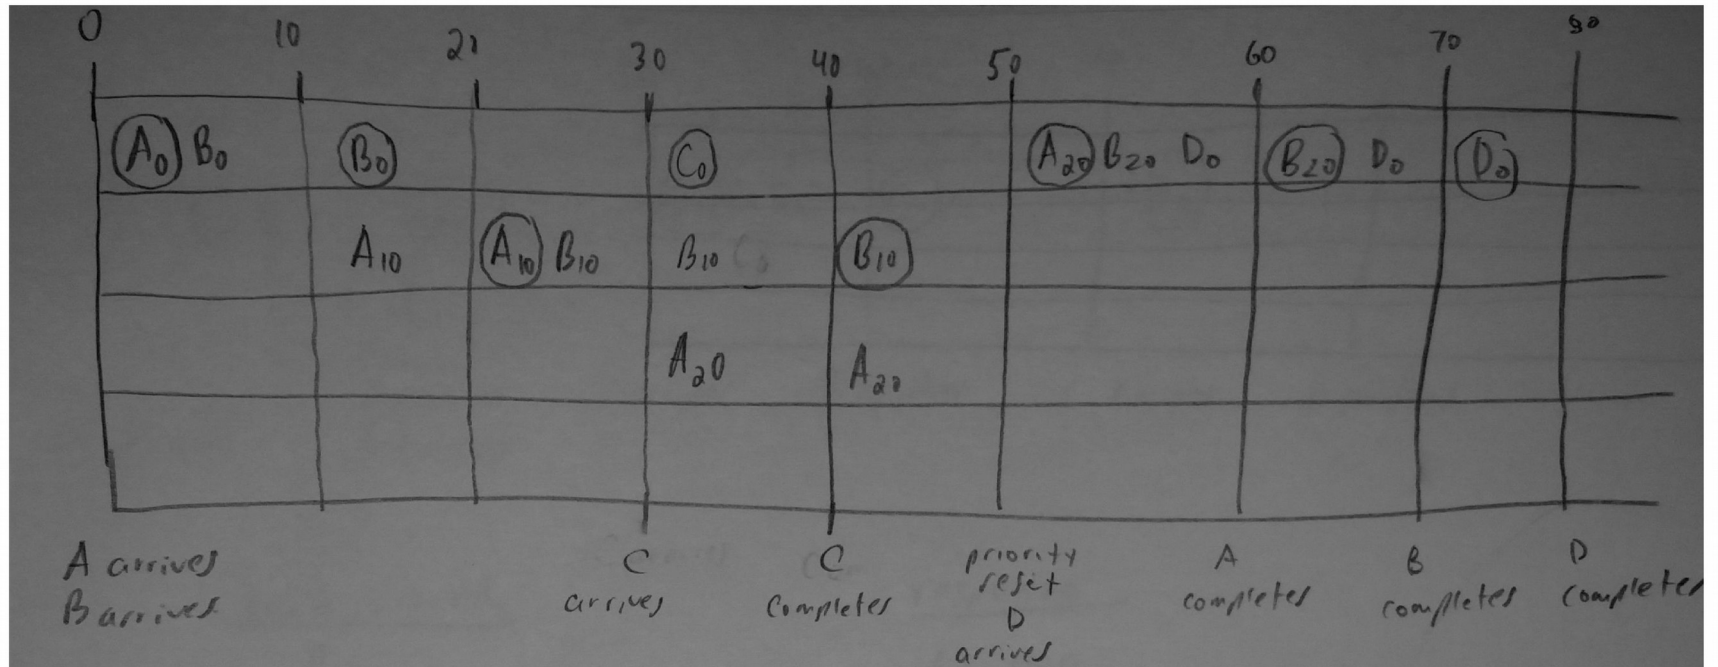 0 10 20 30 40 50 60 70 80
A0 B0 B0 C0 A20 B20 D0 B20 D0 D0
A10 A10 B10 B10 B10
A20 A20
A arrives
B arrives
C
arrives
C
completes
priority
reset
D
arrives
A
completes
B
completes
D
completes